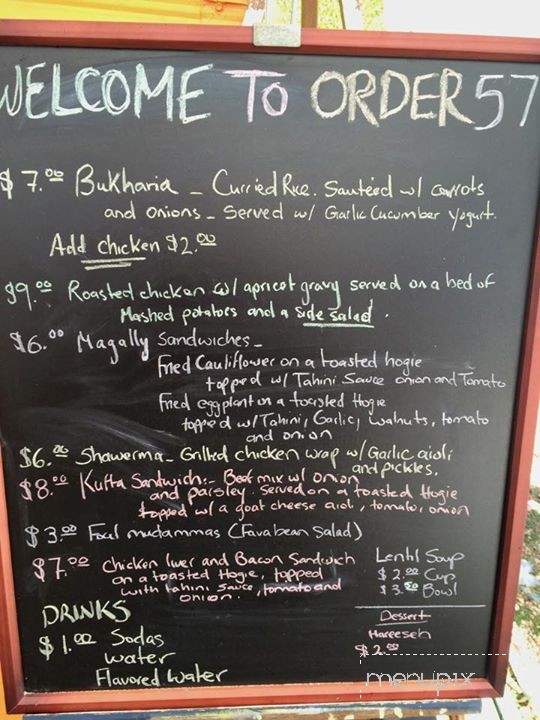 WELCOME TO ORDER 57
$7.00 Bukharia - Curried Rice. Sautéed w/ carrots
and onions - Served w/ Garlic Cucumber Yogurt.
Add chicken $2.00
$9.00 Roasted chicken w/ apricot gravy served on a bed of
Mashed potatoes and a side salad.
$6.00 Magally Sandwiches -
Fried Cauliflower on a toasted hogie
topped w/ Tahini Sauce onion and Tomato
Fried eggplant on a toasted Hogie
topped w/ Tahini, Garlic, walnuts, tomato
and onion
$6.00 Shawerma - Grilled chicken wap w/ Garlic aioli
and pickles.
$8.00 Kufta Sandwich:- Beef mix w/ onion
and parsley. Served on a toasted Hogie
topped w/ a goat cheese aioli, tomator, onion
$3.00 Foul mudammas (Fava bean Salad)
$7.00 Chicken liver and Bacon Sandwich
on a toasted Hogie, topped
with tahini sauce, tomato and
onion.
Lentil Soup
$2.00 Cup
$3.50 Bowl
DRINKS
$1.00 Sodas
water
Flavored water
Dessert
Hareeseh
$2.00
menupix